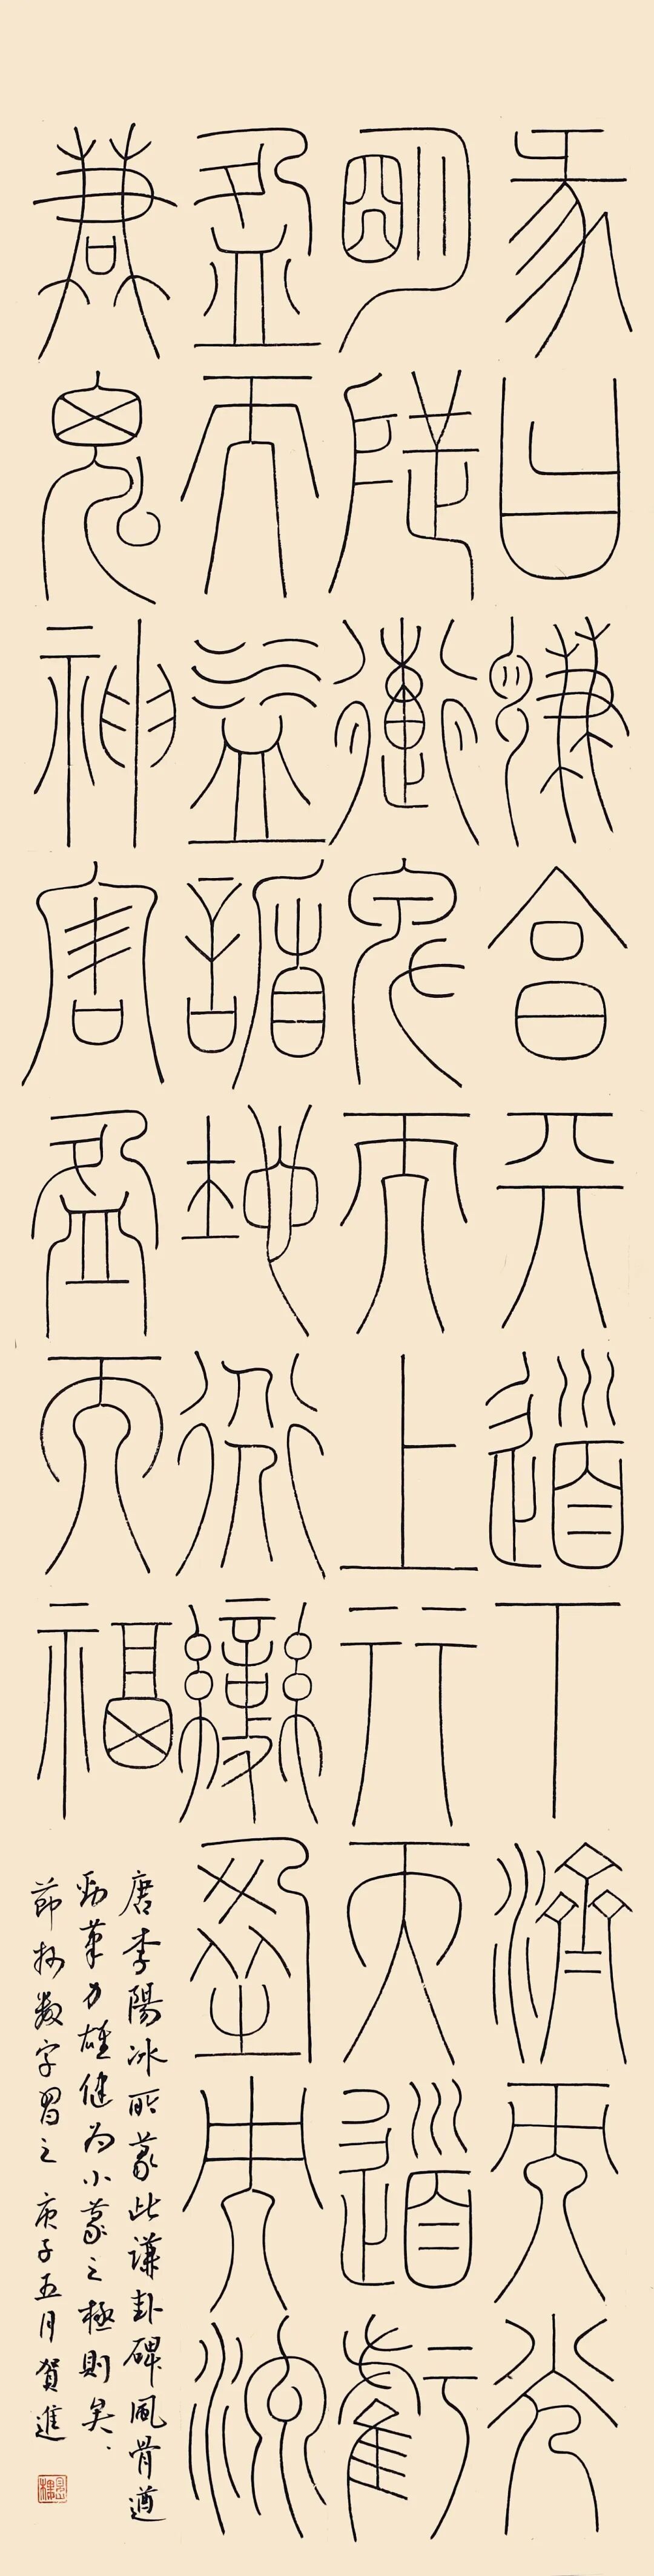 彖曰謙亨天道下濟而光
明地道卑而上行天道虧
盈而益謙地道變盈而流
謙鬼神害盈而福
唐李陽冰所篆此謙卦碑風骨遒
勁筆力雄健為小篆之極則矣
節抄數字習之 庚子五月賀進